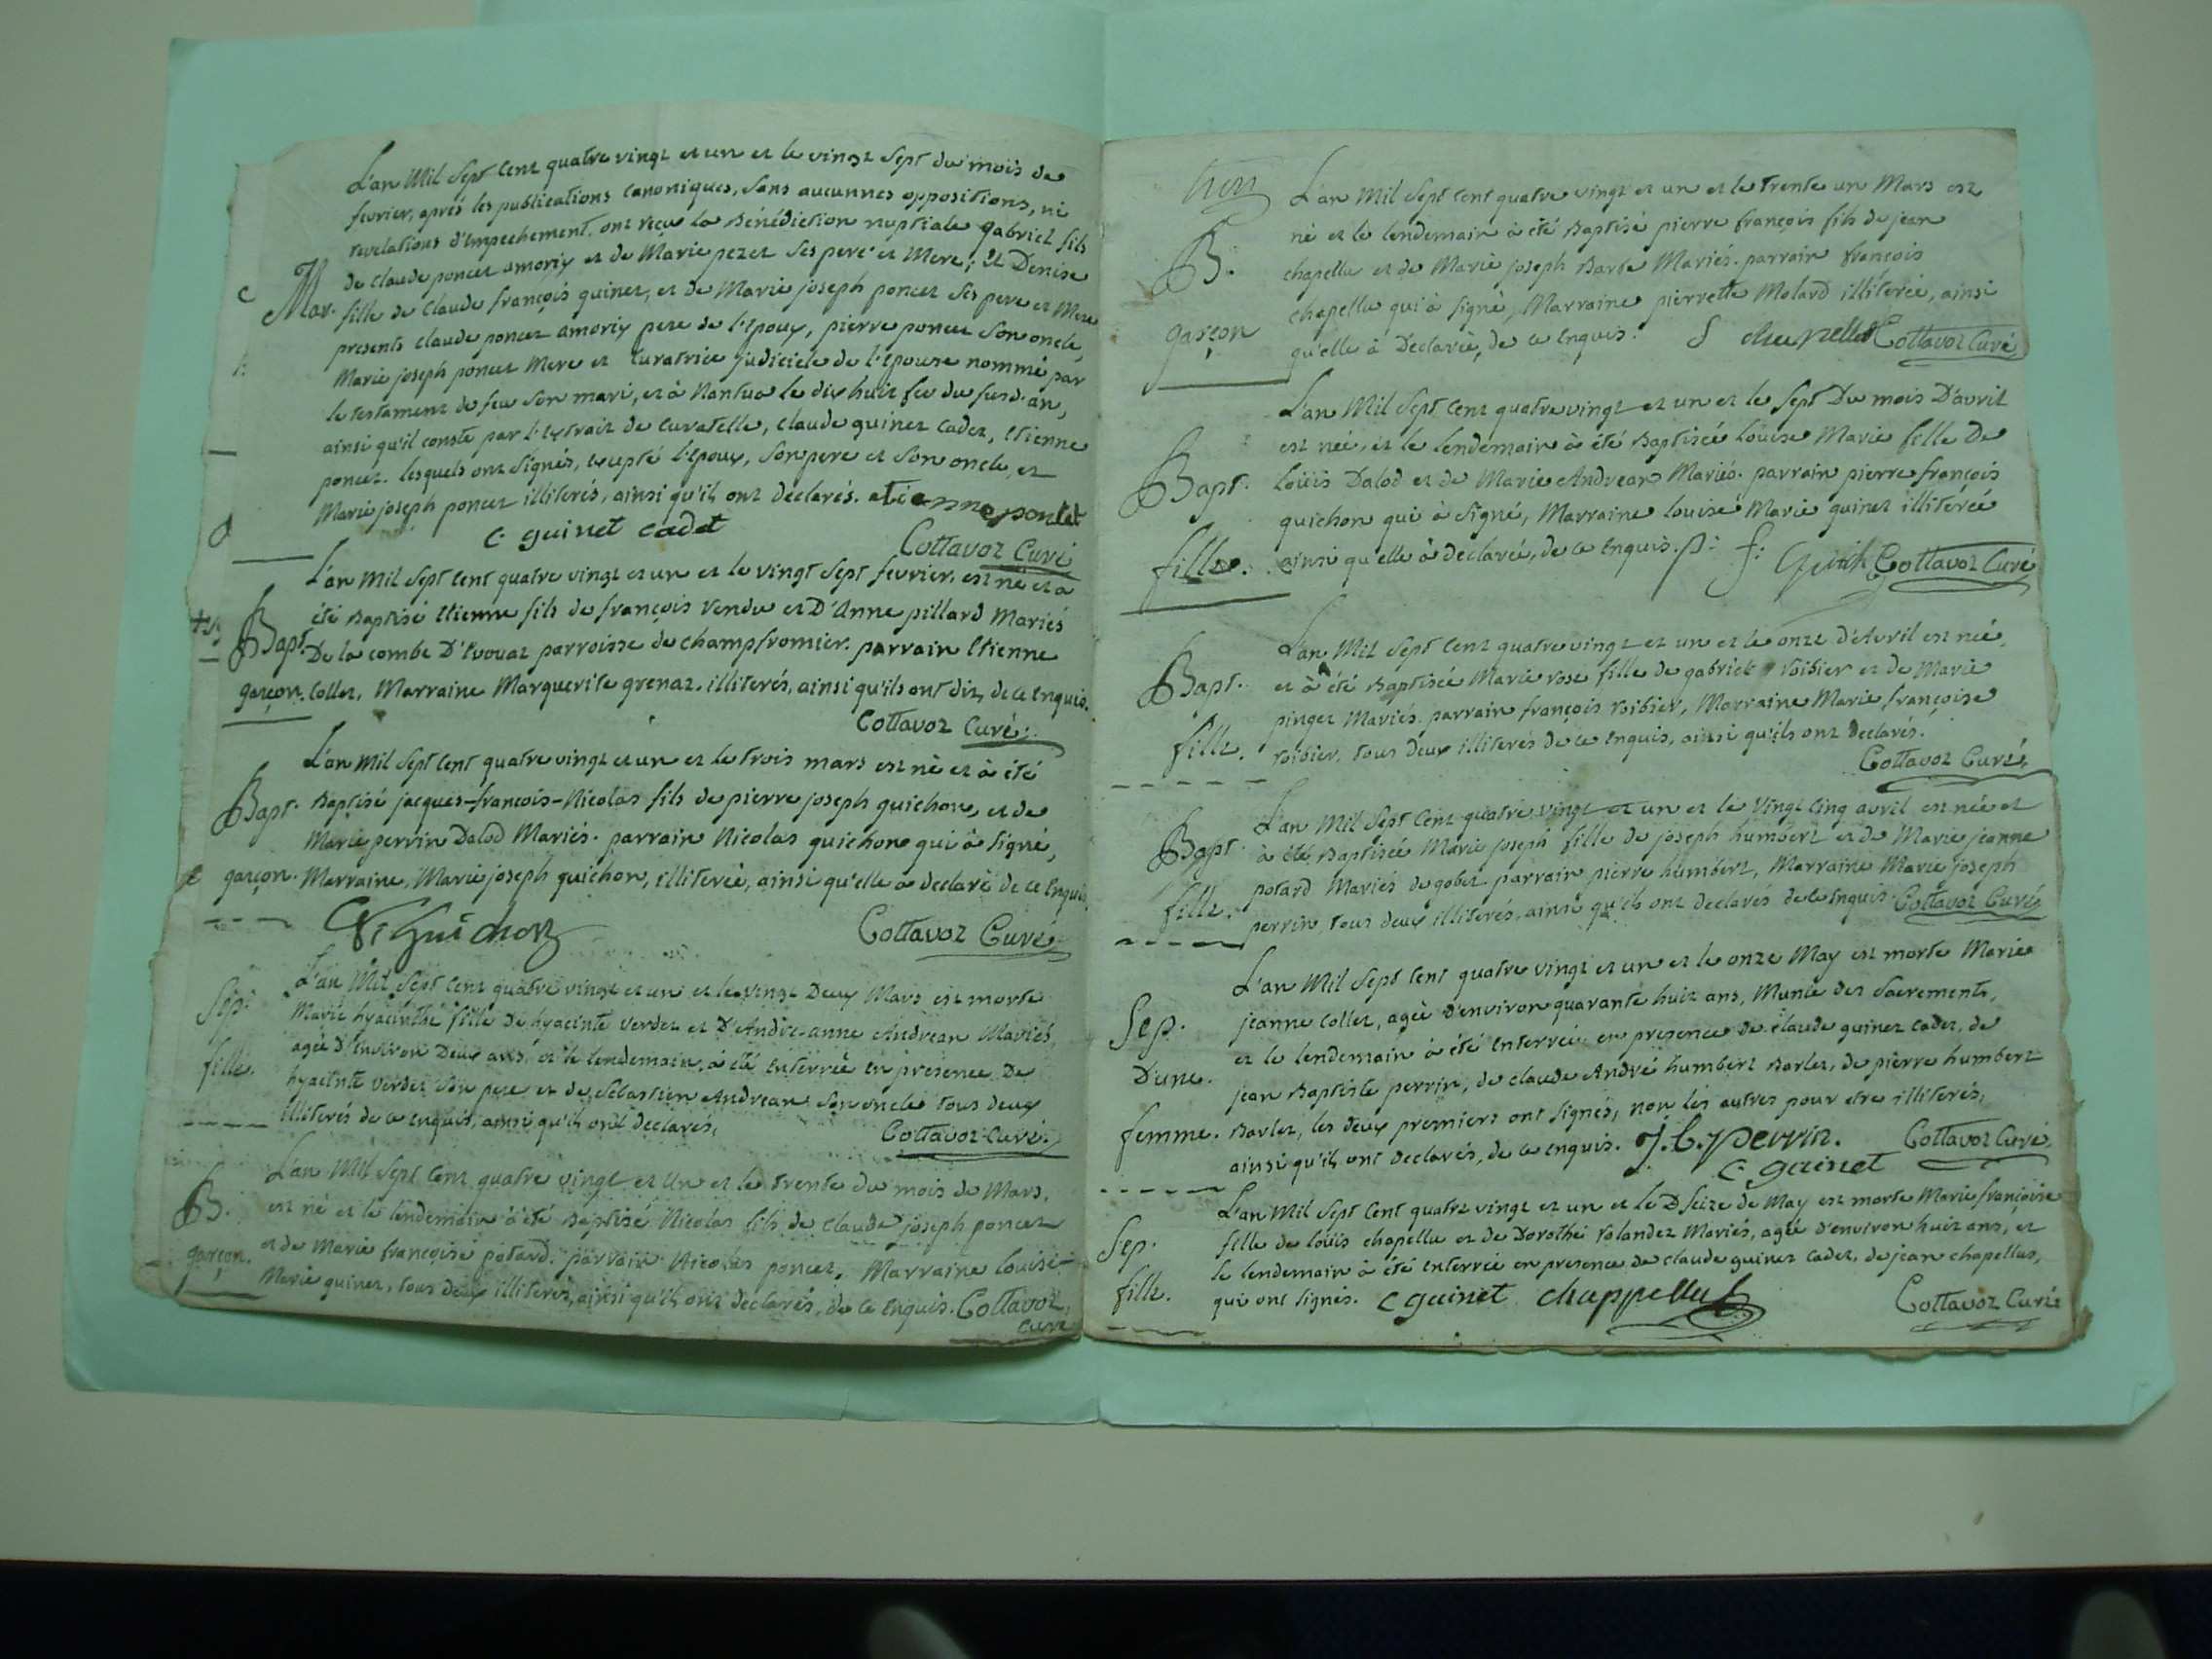 L'an Mil Sept Cent quatre vingt et un et le vingt Sept du mois de
fevrier, aprés les publications canoniques, sans aucunnes oppositions, ni
revelations d'Empechement. ont reçu la Bénédiction nuptiale gabriel fils
de Claude poncet amorix et de Marie pezet Ses pere et Mere; Et Denise
Mar. fille de Claude françois guinet, et de Marie joseph poncet Ses pere et Mere
presents claude poncet amorix pere de l'Epoux, pierre poncet Son oncle,
Marie joseph poncet Mere et Curatrice judiciele de l'Epouse nommé par
le testament de feu Son mari, et à Nantua le dix huit fev du susd. an,
ainsi qu'il conste par l'Extrait de Curatelle, Claude guinet Cadet, Etienne
poncet. lesquels ont Signés, Excepté l'Epoux, Son pere et Son oncle, et
Marie joseph poncet illiterés, ainsi qu'ils ont declarés. etienne ponset
C guinet cadet
Cottavoz Curé
L'an Mil Sept Cent quatre vingt et un et le vingt Sept fevrier, est né et a
été Baptisé Etienne fils de françois Vendu et D'Anne pillard Mariés
Bapt. De la combe D'Evouaz parroisse de champfromier. parrain Etienne
garçon. Collet, Marraine Marguerite grenat. illiterés, ainsi qu'ils ont dit, de ce Enquis.
Cottavoz Curé
L'an Mil Sept Cent quatre vingt et un et le trois mars est né et à été
Bapt. Baptisé jacques-françois-Nicolas fils de pierre joseph guichon, et de
Marie perrin Dalod Mariés. parrain Nicolas guichon qui à Signé,
garçon. Marraine, Marie joseph guichon, illiterée, ainsi qu'elle a declaré de ce Enquis
N. Guichon Cottavoz Curé
L'an Mil Sept Cent quatre vingt et un et le vingt Deux Mars est morte
Sep. Marie hyacinthe fille de hyacinte Verdet et D'Andre-anne Andrean Mariés,
agée d'Environ Deux ans, et le lendemain à été Enterrée en presence De
fille. hyacinte Verdet Son pere et de Sébastien Andrean Son oncle tous deux
illiterés de ce enquis, ainsi qu'ils ont declarés,
Cottavoz Curé
L'an Mil Sept Cent quatre vingt et Un et le trente du mois de Mars,
B. est né et le lendemain à été Baptisé Nicolas fils de claude joseph poncet
garçon. et de Marie françoise potard. parrain Nicolas poncet, Marraine Louise-
Marie guinet, tous deux illiterés, ainsi qu'ils ont declarés, de ce Enquis. Cottavoz
Curé
L'an Mil Sept Cent quatre vingt et un et le trente un Mars est
né et le lendemain à été Baptisé pierre françois fils de jean
B. chapellu et de Marie joseph Barbe Mariés. parrain françois
chapellu qui à Signé, Marraine pierrette Molard illiterée, ainsi
garçon qu'elle à Declarée, de ce Enquis. Cottavoz Curé
L'an Mil Sept Cent quatre vingt et un et le Sept Du mois D'avril
est née, et le lendemain à été Baptisée Louise Marie fille De
Bapt. Loüis Dalod et de Marie Andrean Mariés. parrain pierre françois
guichon qui à Signé, Marraine Louise Marie guinet illiterée
fille. ainsi qu'elle à Declarée, de ce Enquis. p: f: Guich Cottavoz Curé
L'an Mil Sept Cent quatre vingt et un et le onze d'Avril est née,
Bapt. et à été Baptisée Marie rose fille de gabriel roibier et de Marie
pinget Mariés. parrain françois roibier, Marraine Marie françoise
fille. roibier, tous deux illiterés de ce Enquis, ainsi qu'ils ont declarés.
Cottavoz Curé
L'an Mil Sept Cent quatre vingt et un et le Vingt Cinq avril est née et
Bapt. à été Baptisée Marie joseph fille de joseph humbert et de Marie jeanne
potard Mariés de gobet parrain pierre humbert, Marraine Marie joseph
fille. perrin, tous deux illiterés, ainsi qu'ils ont declarés de ce Enquis Cottavoz Curé
L'an Mil Sept Cent quatre vingt et un et le onze May est morte Marie
Sep. jeanne Collet, agée d'environ quarante huit ans, Munie des Sacrements,
et le lendemain à été Enterrée en presence de Claude guinet Cadet, de
D'une. jean Baptiste perrin, de claude André humbert Barlet, de pierre humbert
femme. Barlet, les deux premiers ont Signés, non les autres pour etre illiterés,
ainsi qu'ils ont declarés, de ce enquis. J. B. perrin. Cottavoz Curé
C. guinet
L'an Mil Sept Cent quatre vingt et un et le D Seize de May est morte Marie françoise
Sep. fille de Loüis chapellu et de Dorothé rolandez Mariés, agée d'environ huit ans, et
le lendemain à été Enterrée en presence de claude guinet Cadet, de jean chapellus,
fille. qui ont Signés. C guinet chappellu Cottavoz Curé